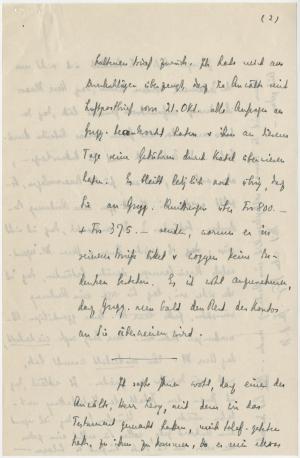 (2)
haltenen Brief zurück. Ich habe mich aus
Durchschlägen überzeugt, dass Ihr Anwalt mit
Luftpostbrief vom 21. Okt. alle Anfragen an
Grgg. beantwortet haben & ihm an diesem
Tage seine Gebühren durch Kabel überwiesen
haben. Es bleibt lediglich noch übrig, dass
Sie an Grgg. Quittungen über Frs 800.-
+ Frs 375.- senden, worum er in
seinem Briefe bittet & wogegen keine Be-
denken bestehen. Es ist wohl anzunehmen,
dass Grgg. nun bald den Rest des Kontos
an Sie überweisen wird.
Ich sagte Ihnen wohl, dass einer der
Anwälte, Herr Levy, mit dem ich das
Testament gemacht haben, mich telef. gebeten
hat, zu ihm zu kommen, da er mir etwas